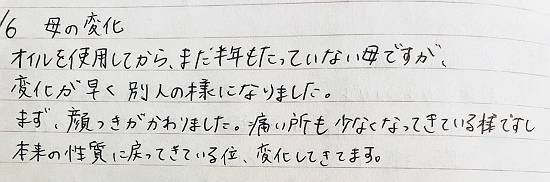 1/6 母の変化
オイルを使用してから、まだ半年もたっていない母ですが、
変化が早く別人の様になりました。
まず、顔つきがかわりました。痛い所も少なくなってきている様ですし
本来の性質に戻ってきている位、変化してきてます。